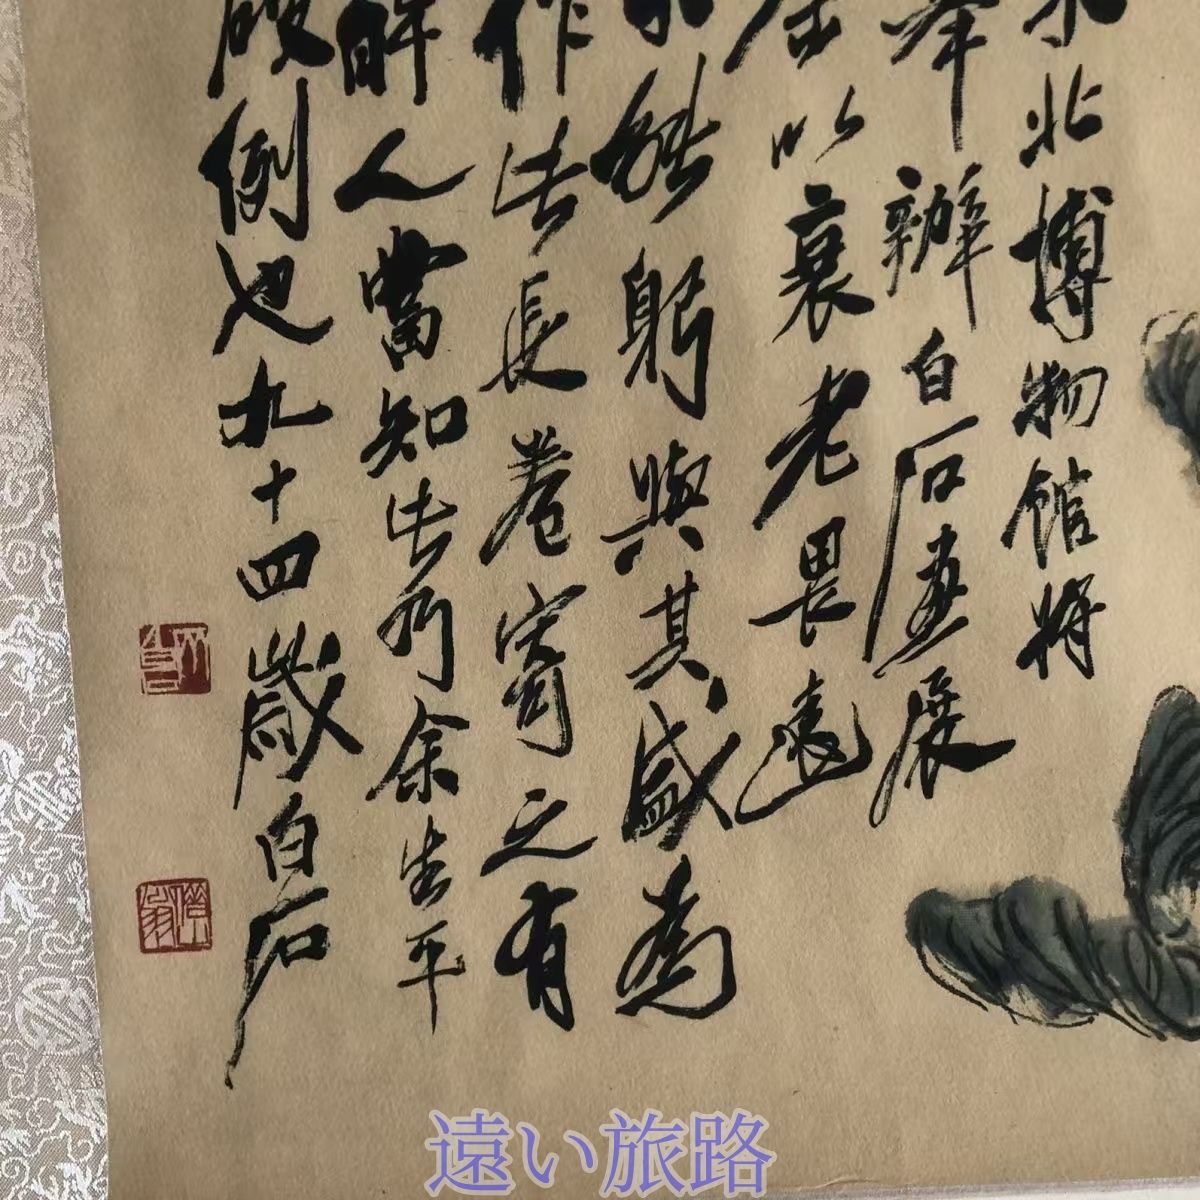 東北博物館將
舉辦白石画展
余以衰老畏遠
不能躬與其盛為
作此長卷寄之有
眸人當知此乃余生平
破例也九十四歲白石
遠い旅路